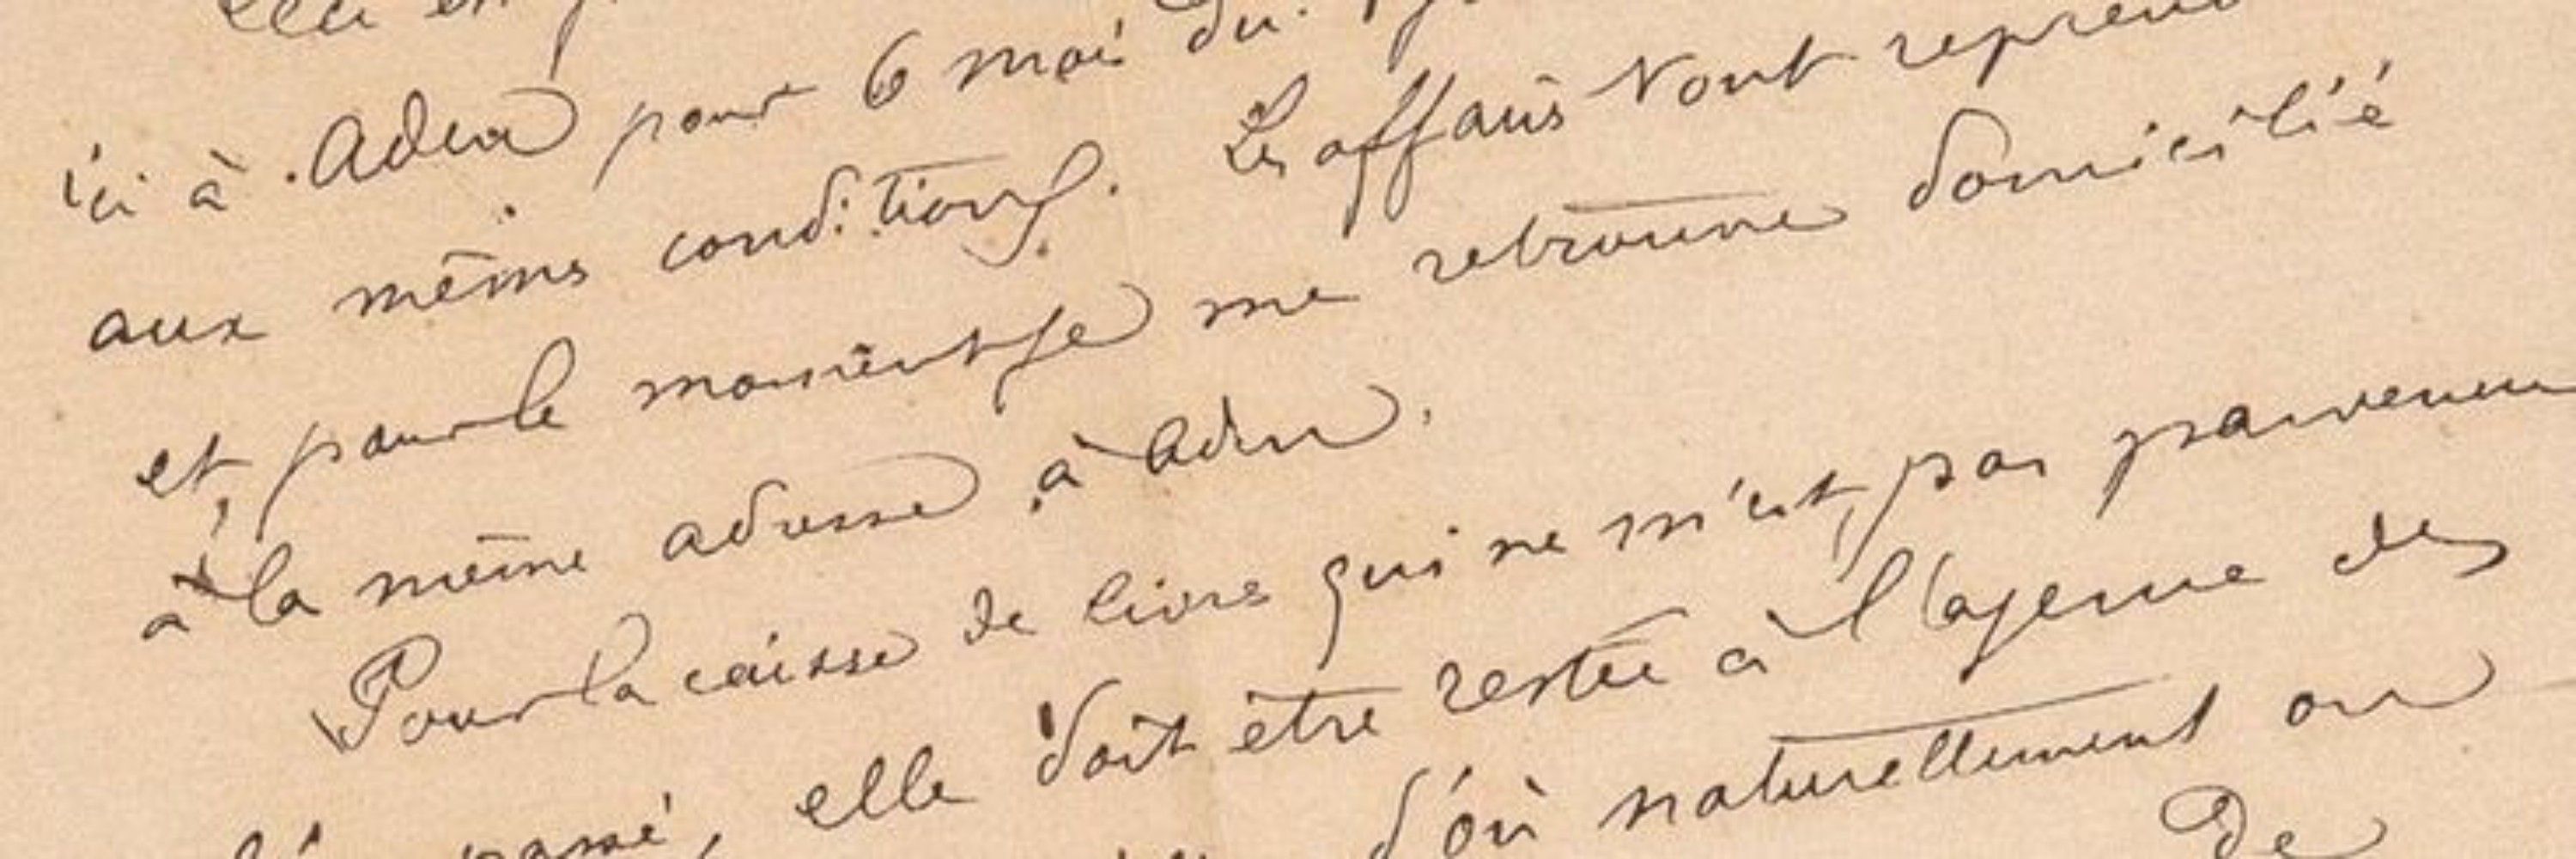 ici à Aden pour 6 mois du
aux mêmes conditions. Les affaires vont reprend
et, pour le moment je me retrouve domicilié
à la même adresse, à Aden.
Pour la caisse de livres qui ne m'est pas parvenue
passé, elle doit être restée à l'agence des
d'où naturellement on
de